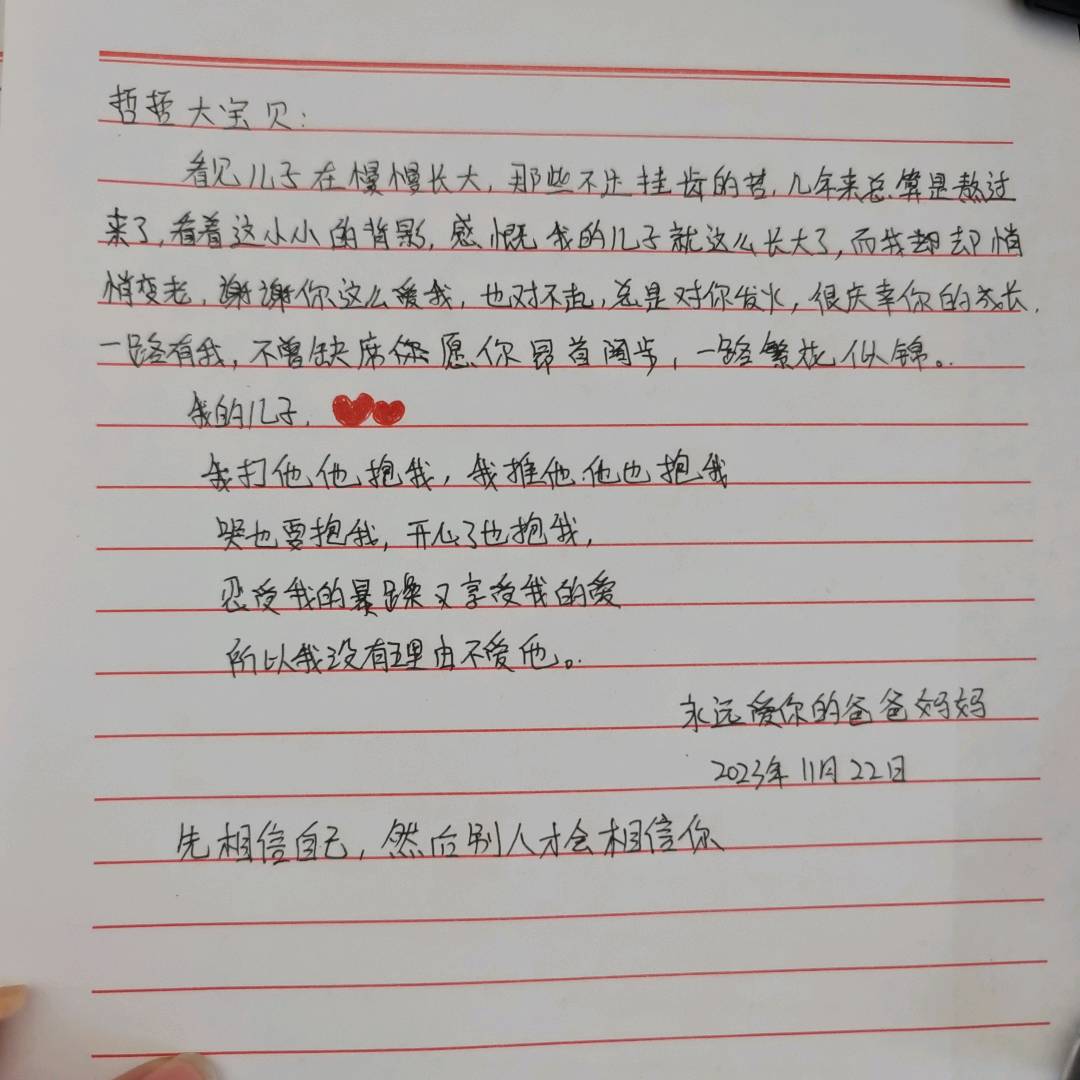 哲哲大宝贝：
看见儿子在慢慢长大，那些不足挂齿的苦，几年来总算是熬过
来了，看着这小小的背影，感慨我的儿子就这么长大了，而我却却悄
悄变老，谢谢你这么爱我，也对不起，总是对你发火，很庆幸你的成长，
一路有我，不曾缺席你愿你昂首阔步，一路繁花似锦。
我的儿子，
我打他他抱我，我推他他也抱我
哭也要抱我，开心了也抱我，
忍受我的暴躁又享受我的爱
所以我没有理由不爱他。
永远爱你的爸爸妈妈
2023年11月22日
先相信自己，然后别人才会相信你